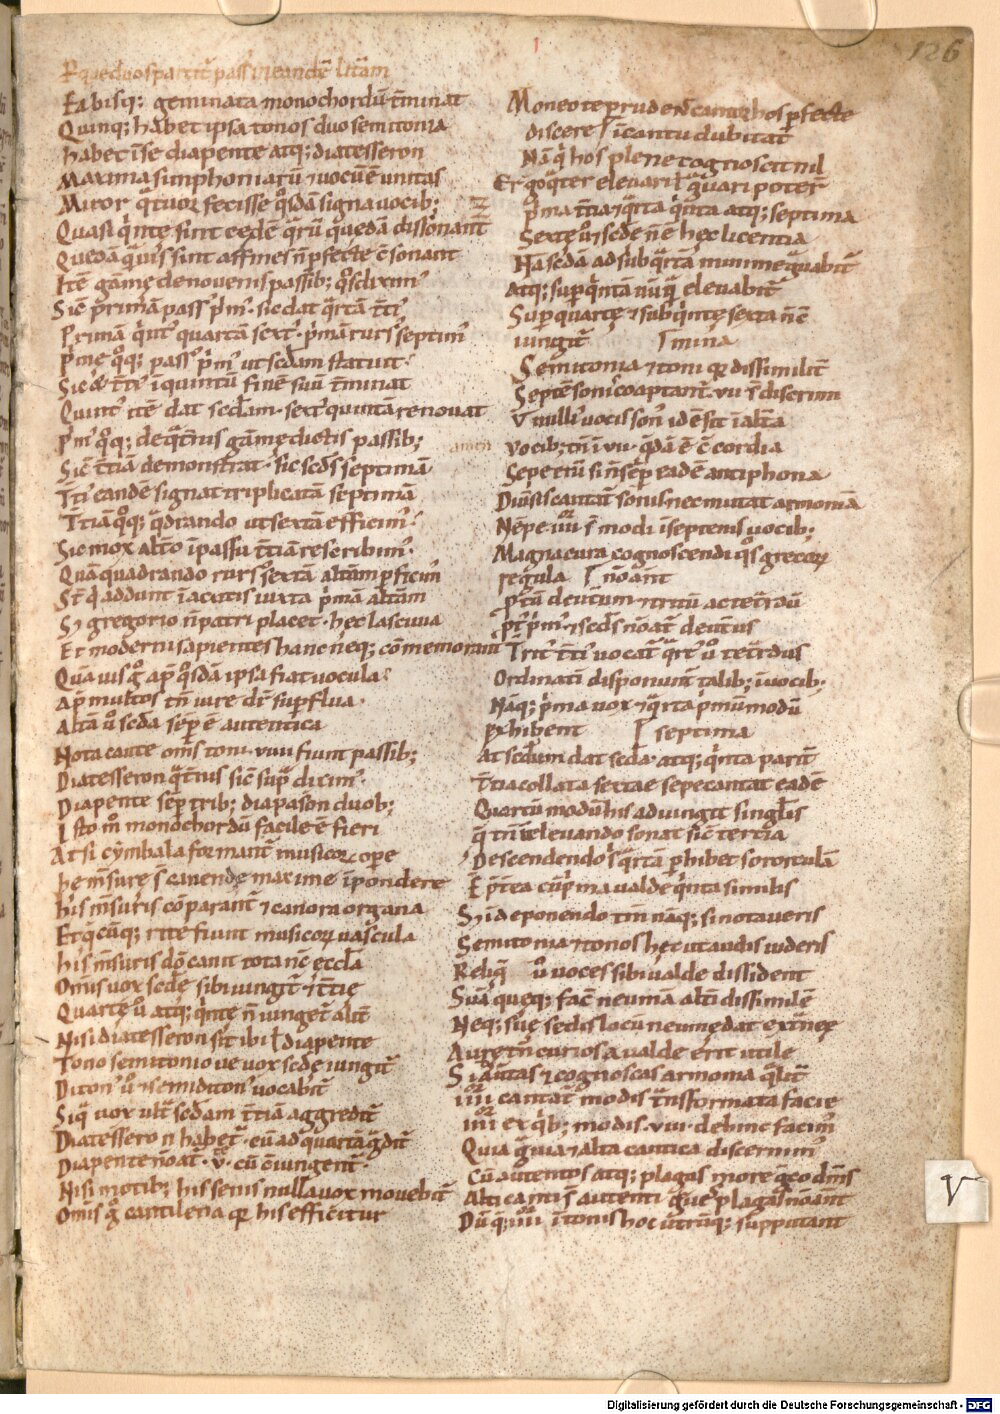 126
P que duos partit᷒ pass᷒ in eandē litt̄am
Ea bisq; geminata monochordū t̄minat
Quinq; habet ipsa tonos duo semitonia
habet in se diapente atq; diatesseron
Maxima simphoniarū & vocū ē unitas
Miror q̄tuor fecisse q̊sdā signa vocib;
Quasi q̄nte sint eedē q̄rū quedā dissonant
Quedā q̄uis sint affines n̄ p̄fecte c̄sonant
Itē gāme de novenis passib; q̊s diximꝰ
Sic̄ primā passꝰ p̄mꝰ sic dat q̄rtā t̄tiꝰ
Primā q̄ntꝰ quartā sextꝰ p̄mā rursꝰ septimꝰ
p̄me q̊q; passꝰ p̄mꝰ ut sc̄dam statuit
Sic & t̄tiꝰ in quintū finē suū t̄minat
Quintꝰ itē dat sc̄dam sextꝰ quintā renovat
p̄mꝰ q̊q; de q̄t̄nis gāme ductis passib;
Sic̄ t̄tiā demonstrat sic sc̄ds septimā
T̄tiꝰ eandē signat triplicatā septimā
T̄tiā q̊q; q̄drando ut sextā efficimꝰ
Sic mox altō in passu t̄tiā rescribimꝰ
Quā quadrando rursꝰ sextā altām p̄ficimꝰ
St̄ q addunt in acutis iuxta p̄mā altām
S; gregorio n̄ patri placet hec lascivia
Et moderni sapientes hanc neq; cōmemorant
Quāuis g̊ ap̄ q̊sdā ipsa fiat vocula
Ap̄ multos tn̄ iure dr̄ supflua
Altā ū sc̄da semp̄ ē autentica
Nota caute om̄s toni viiii fiunt passib;
Diatesseron q̄t̄nis sic̄ supͣ diximꝰ
Diapente semp̄ trib; diapason duob;
Isto m̊ monochordū facile ē fieri
At si cymbala formant᷒ musicoꝝ ope
he m̄sure s̄ cavende maxime in pondere
his m̄suris cōparant᷒ & canora organa
Et q̄cūq; rite fiunt musicoꝝ vascula
his m̄suris dō canit tota nc̄ eccl̄a
Om̄is vox sc̄de sibi iungit᷒ & t̄tie
Quarte ū atq; q̄nte n̄ iunget᷒ alit̄
Nisi diatesseron sit ibi ł diapente
Tono semitonio ve vox sc̄de iungit᷒
Ditonꝰ ū & semiditonꝰ vocabit᷒
Siq̄ vox ult̄ sc̄dam t̄tiā aggredit᷒
Diatesseron habet᷒ cū ad quartā ḡdit᷒
Diapente nōat᷒ v cū c̄iungent᷒
Nisi motib; his senis nulla vox movebit᷒
Om̄is g̊ cantilena qꝛ his efficitur
Moneo te prudens cantor hos p̄fecte
discere ⌈ in cantu dubitat᷒
Nāq̄ hos plene cognoscit nil
Ergo q̄liter elevari ł ḡvari poter̄
p̄ma t̄tia & q̄rta q̄nta atq; septima
Sexte ū & sc̄de n̄ ē hec licentia
Nā sc̄da ad sub q̄rtā minime ḡvabit᷒
atq; sup q̄nta nūq̄ elevabit᷒
Sup quarte & sub q̄nte sexta n̄ ē
iungit᷒ ⌈ mina
Semitonia & toni qꝛ dissimilit̄
Septē soni coaptant᷒ vii s̄ discrimi
Ū nulliꝰ vocis sonꝰ idē sit in altā
vocib; tn̄ in vii q̄dā ē c̄cordia
Sepe etiā si n̄ semp̄ eadē antiphona
Diūsis cantat᷒ sonis nec mutat armoniā
Nēpe iiii s̄ modi in septenis vocib;
Magna cura cognoscendi q̊s grecoꝝ
regula ⌈ nōant
ptū deūtum & tritū ac tetrdū
pt̄ p̄mꝰ & sc̄ds nōat᷒ deūtus
Tritꝰ t̄tiꝰ vocat᷒ q̄rtꝰ ū tetrdus
Ordinati disponunt᷒ talib; in vocib;
Nāq; p̄ma vox & q̄rta p̄mū modū
exhibent ⌈ septima
at sc̄dum dat sc̄da atq; q̄nta parit᷒
t̄tia collata sextae sepe cantat eadē
Quartū modū his adiungit singłis
q̄ tn̄ elevando sonat sic̄ tertia
Descendendo q̄rtā phibet sororculā
Et p̄t̄ea cū p̄ma valde q̄nta similis
S; in deponendo tm̄ nāq; si notaveris
Semitonia & tonos hec ut audis videris
Reliq̄ ū voces sibi valde dissident
Suā queq; fac̄ neumā alti dissimilē
Neq; sue sedis locū neume dat extnee
Aure tn̄ curiosa valde erit utile
Si advtas & cognoscas armonia q̄lit᷒
iiii cantat᷒ modis t̄nsformata facie
iiii ex q̄b; modis viii dehinc facimꝰ
Quia ḡvia & alta cantica discernimꝰ
Cū autentos atq; plagas more greco dicimꝰ
Alti cantꝰ s̄ autenti ḡve plagas nōant
Dū q; iiii in tonis hoc utrūq; supputant
V
Digitalisierung gefördert durch die Deutsche Forschungsgemeinschaft - DFG